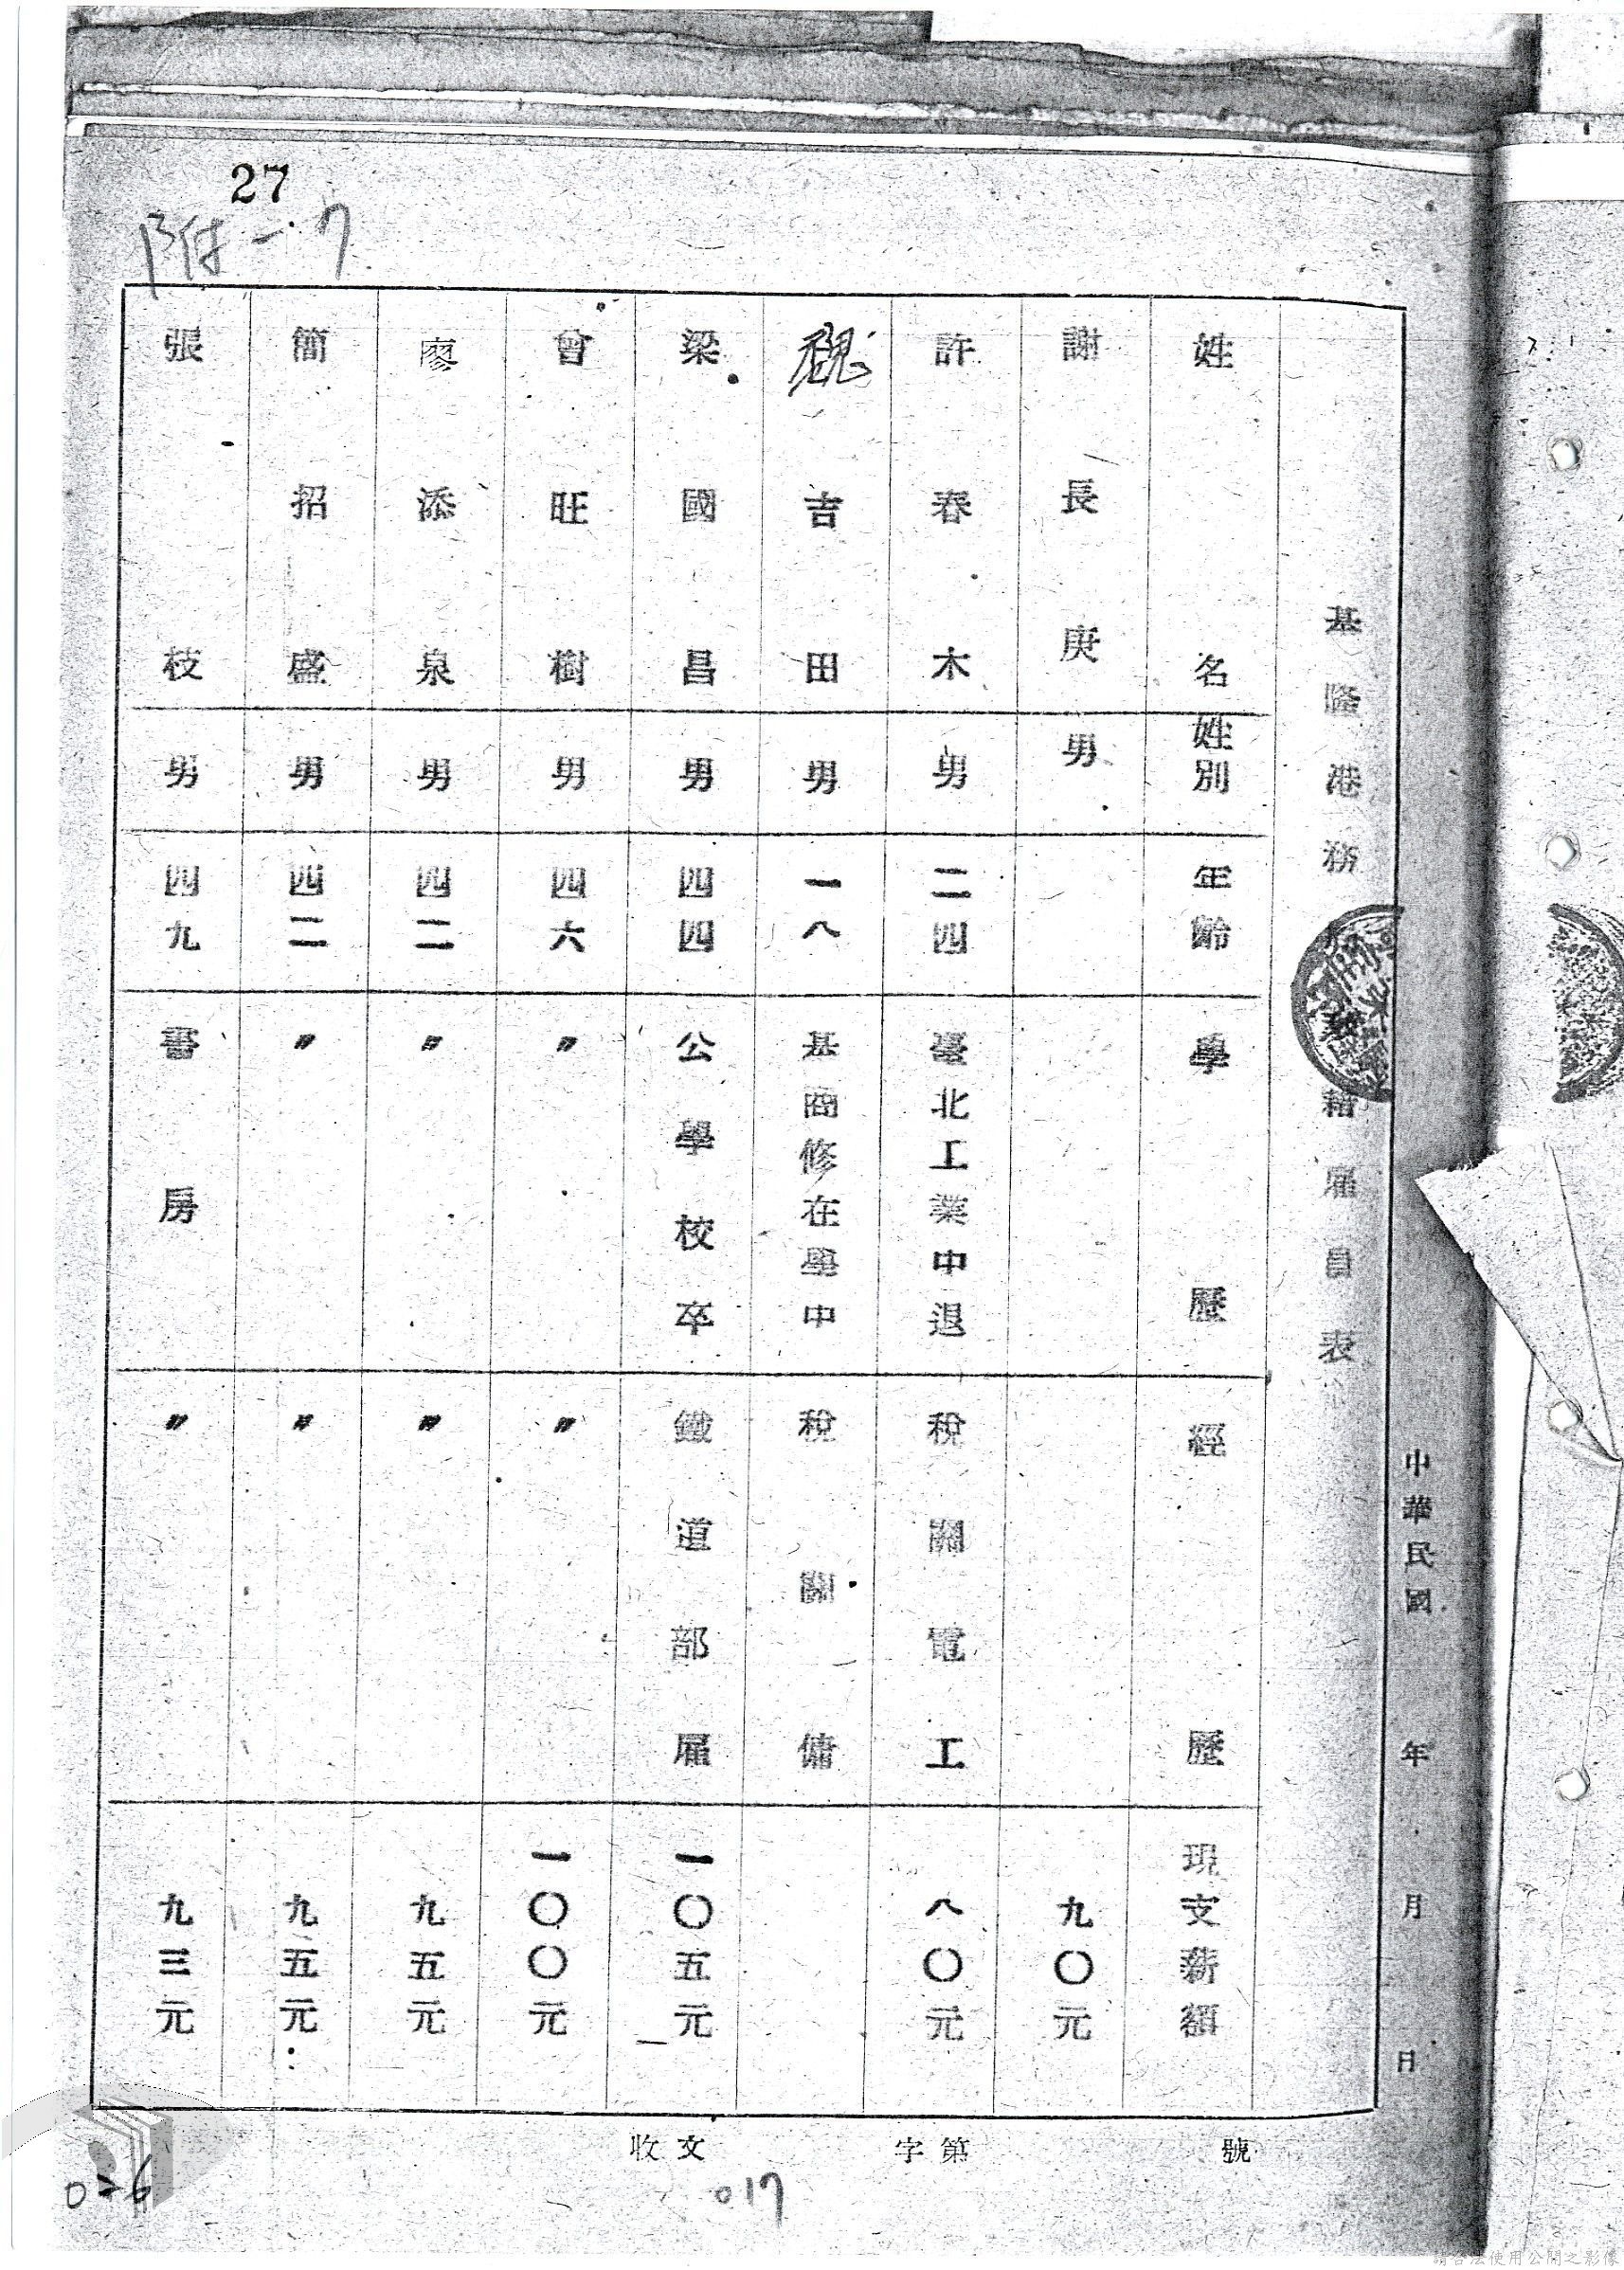 27
附一7
基隆港務
籍雇員表
姓名 姓別 年齡 學歷 經歷 現支薪額
謝長庚 男 九〇元
許春木 男 二四 臺北工業中退 稅關電工 八〇元
魏吉田 男 一八 基商修在學中 稅關傭
梁國昌 男 四四 公學校卒 鐵道部雇 一〇五元
曾旺樹 男 四六 〃 〃 一〇〇元
廖添泉 男 四二 〃 〃 九五元
簡招盛 男 四二 〃 〃 九五元
張枝 男 四九 書房 〃 九三元
中華民國 年 月 日
收文 字第 號
026
017
請合法使用公開之影像